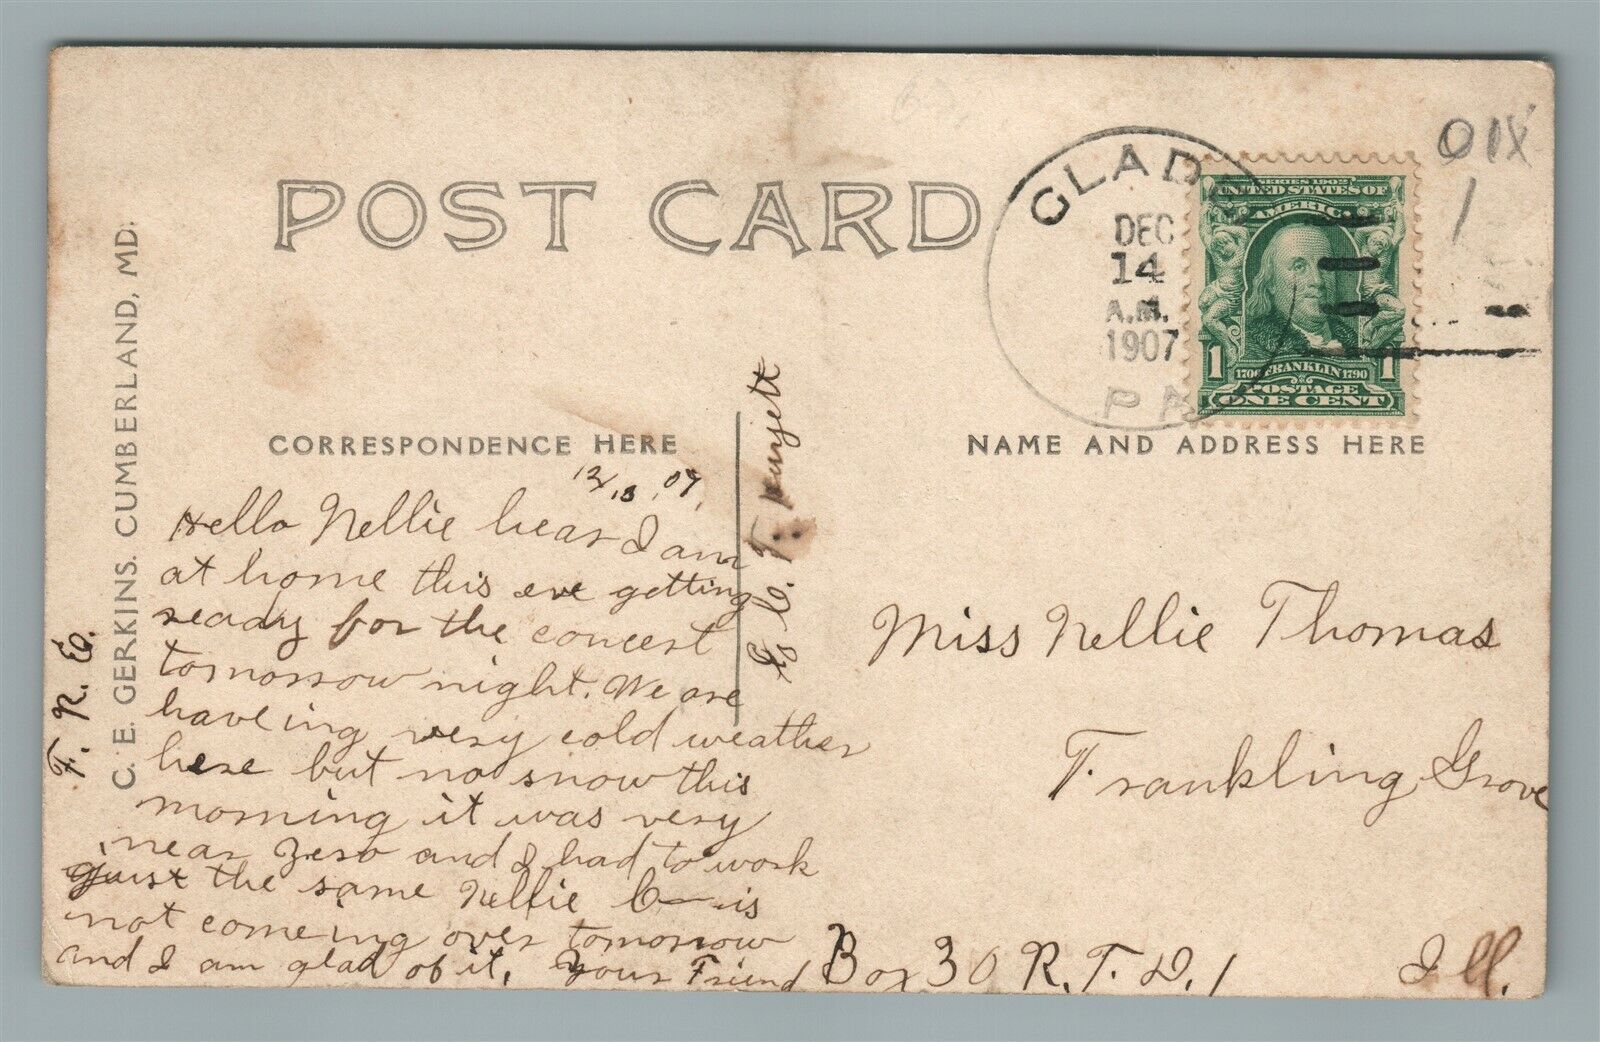 POST CARD
GLADE
DEC
14
A.M.
1907
PA
SERIES 1902
UNITED STATES OF
AMERICA
1706 FRANKLIN 1790
1 1
POSTAGE
ONE CENT
CORRESPONDENCE HERE
NAME AND ADDRESS HERE
C. E. GERKINS. CUMBERLAND, MD.
Hello Nellie hear I am
at home this eve getting
ready for the concert
tomorrow night. We are
haveing very cold weather
here but no snow this
morning it was very
near zero and I had to work
just the same Nellie C—is
not comeing over tomorrow
and I am glad of it. Your Friend
F. R. E.
Miss Nellie Thomas
Frankling Grove
Box 30 R. F. D. 1 Ill.